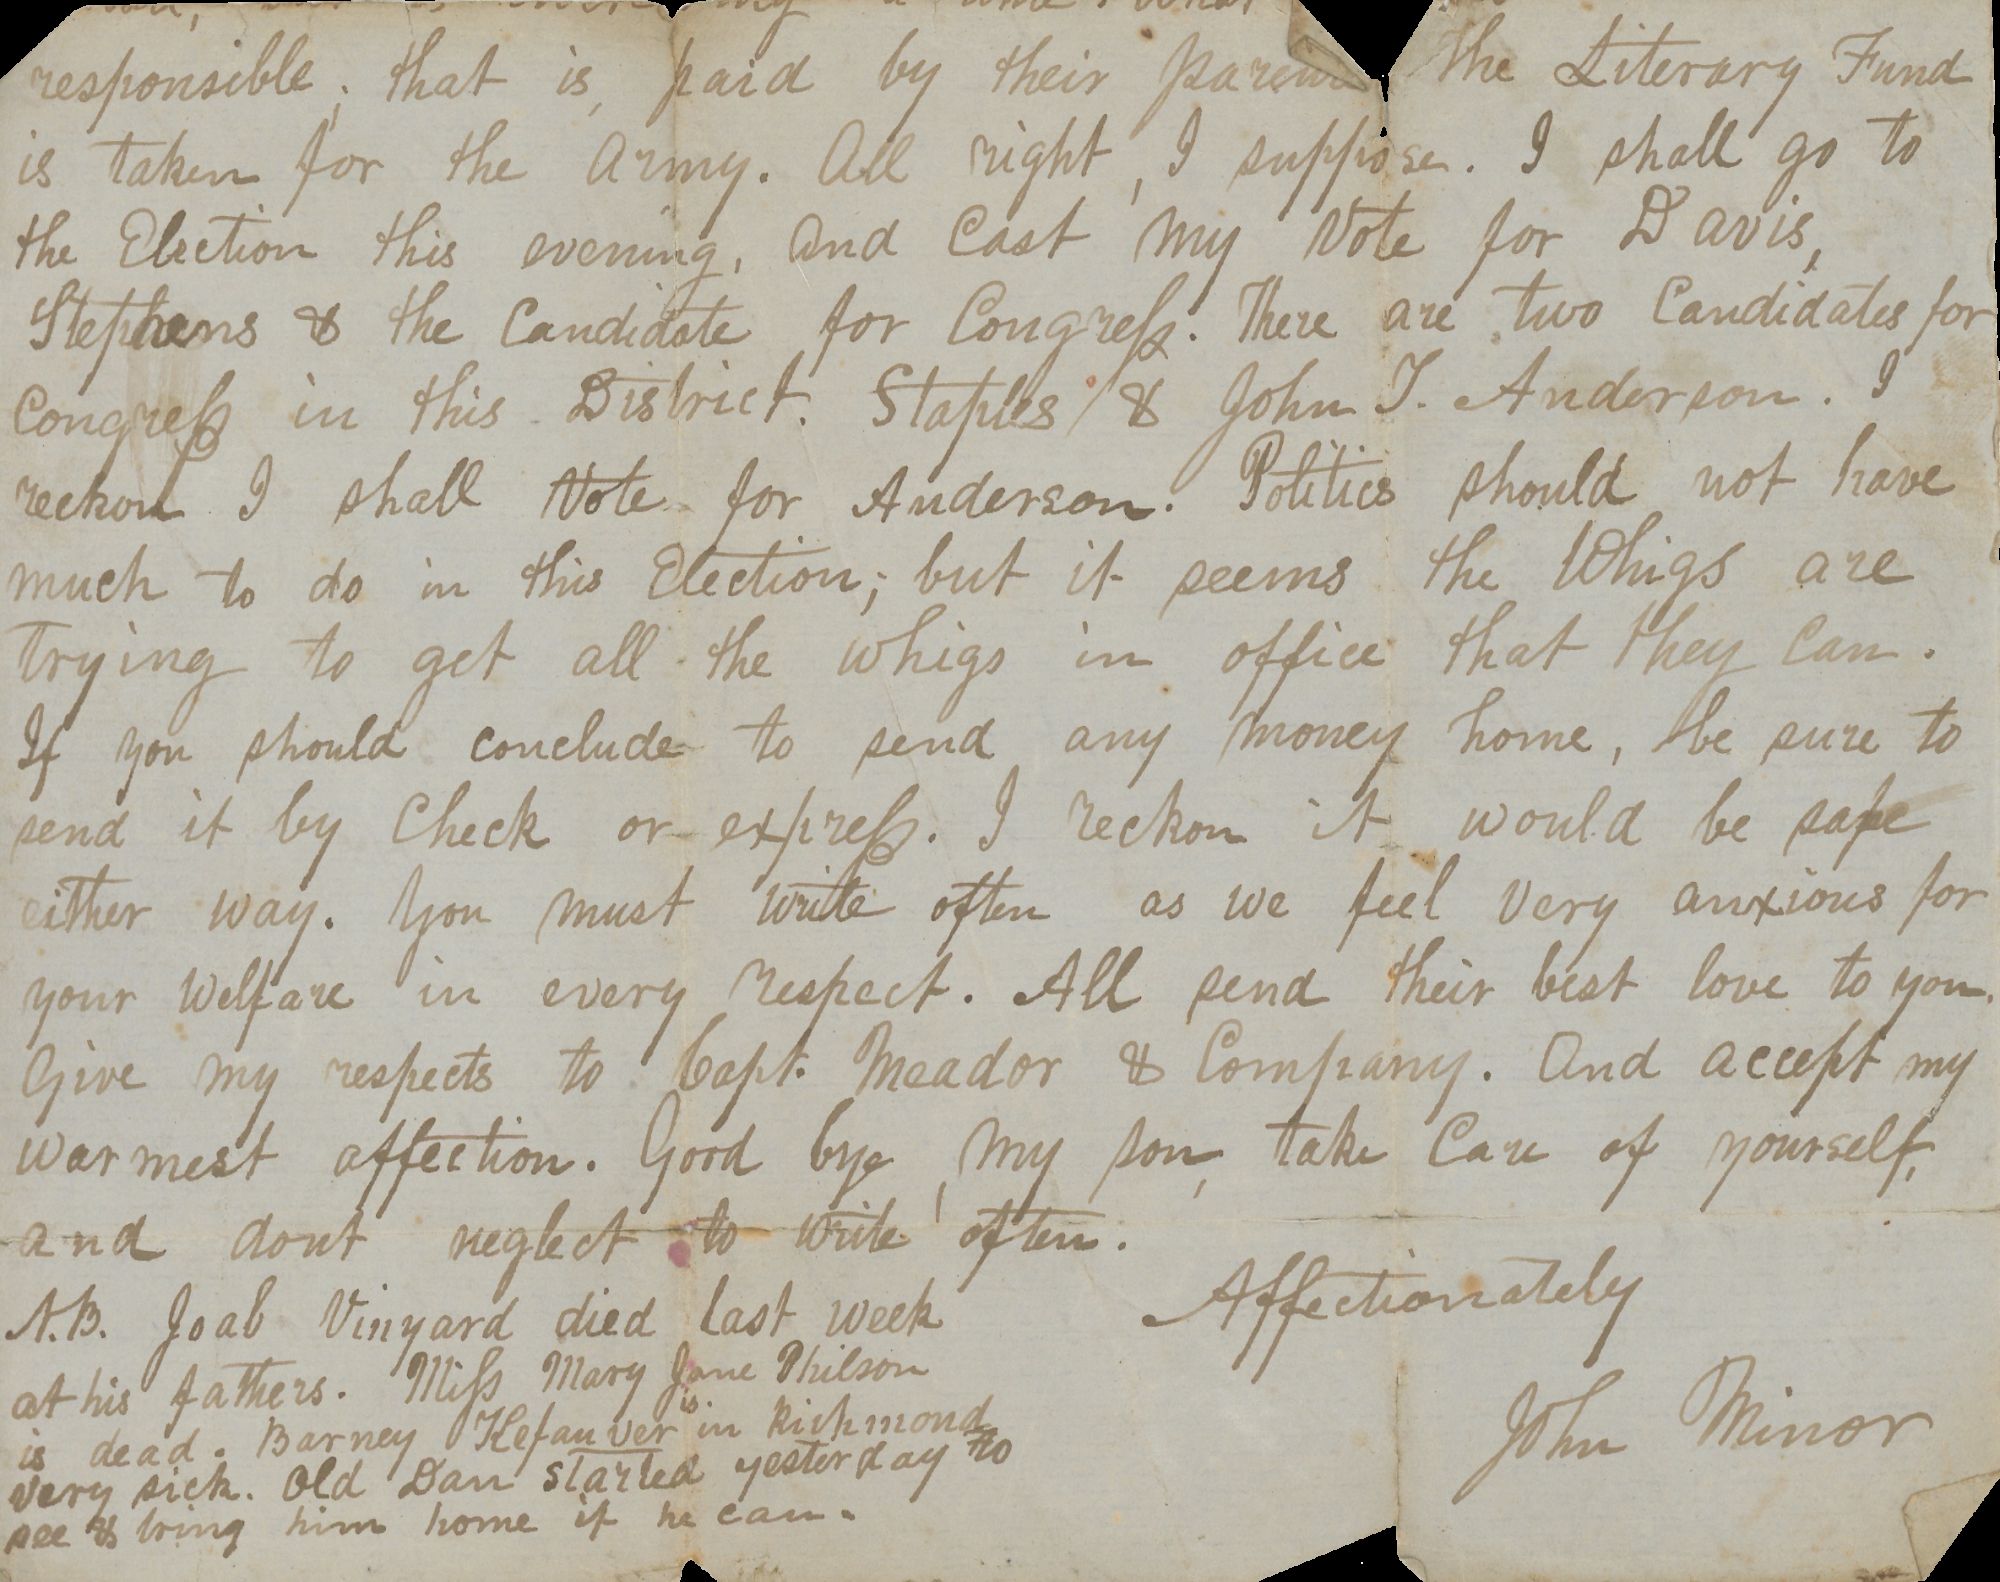 responsible; that is, paid by their The Literary Fund
is taken for the Army. All right, I suppose. I shall go to
the Election this evening, and Cast my Vote for Davis,
Stephens & the Candidate for Congreſs. There are two Candidates for
Congreſs in this District. Staples & John T. Anderson. I
reckon I shall Vote for Anderson. Politics should not have
much to do in this Election; but it seems the Whigs are
trying to get all the whigs in office that they Can.
If you should conclude to send any money home, be sure to
send it by Check or expreſs. I reckon it would be safe
either way. You must write often as we feel very anxious for
your welfare in every respect. All send their best love to you.
Give my respects to Capt. Meador & Company. And accept my
warmest affection. Good bye, my son, take Care of yourself,
and dont neglect to write often.
Affectionately
John Minor
N.B. Joab Vinyard died last week
at his fathers. Miſs Mary Jane Philson
is dead. Barney Kefauver is in Richmond
very sick. Old Dan started yesterday to
see & bring him home if he can.